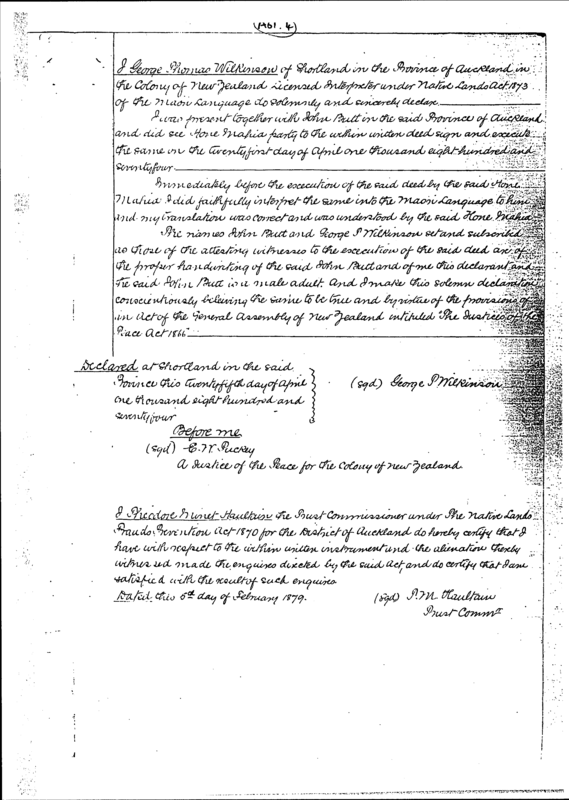 (M61. 4)
I George Thomas Wilkinson of Shortland in the Province of Auckland in
the Colony of New Zealand Licensed Interpreter under Native Lands Act 1873
of the Maori Language do solemnly and sincerely declare
I was present together with John Butt in the said Province of Auckland
and did see Hone Mahia party to the within written deed sign and execute
the same on the twenty first day of April one thousand eight hundred and
seventy four
Immediately before the execution of the said deed by the said Hone
Mahia I did faithfully interpret the same into the Maori Language to him
and my translation was correct and was understood by the said Hone Mahia
The names John Butt and George T Wilkinson set and subscribed
as those of the attesting witnesses to the excecution of the said deed are of
the proper handwriting of the said John Butt and of me this declarant and
the said John Butt is a male adult. And I make this solemn declaration
conscientiously believing the same to be true and by virtue of the provisions of
an Act of the General Assembly of New Zealand intituled The Justices of the
Peace Act 1866
Declared at Shortland in the said
Province this twenty fifth day of April
one thousand eight hundred and
seventy four
(sgd) George T Wilkinson
Before me
(sgd) E. W. Puckey
A Justice of the Peace for the Colony of New Zealand
I Theodore Minet Haultain the Trust Commissioner under The Native Lands
Frauds Prevention Act 1870 for the District of Auckland do hereby certify that I
have with respect to the within written instrument and the alienation thereby
witnessed made the enquires directed by the said Act, and do certify that I am
satisfied with the result of such enquires
Dated this 5th day of February 1879.
(sgd) T. M. Haultain
Trust Commr